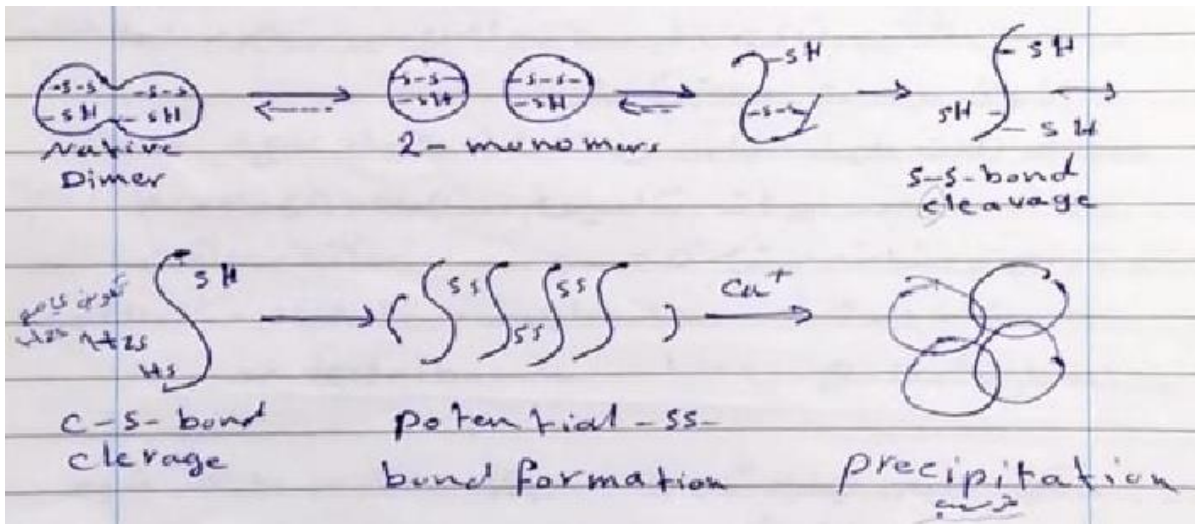 -s-s- -s-s
-sH -sH
Native
Dimer
-s-s- -s-s-
-sH -sH
2- monomers
-sH
-s-s-
-sH
sH -
- sH
s-s-bond
cleavage
sH
Hs
c-s-bond
clevage
ss ss ss
potential -ss-
bond formation
Ca+
precipitation
ترسيب